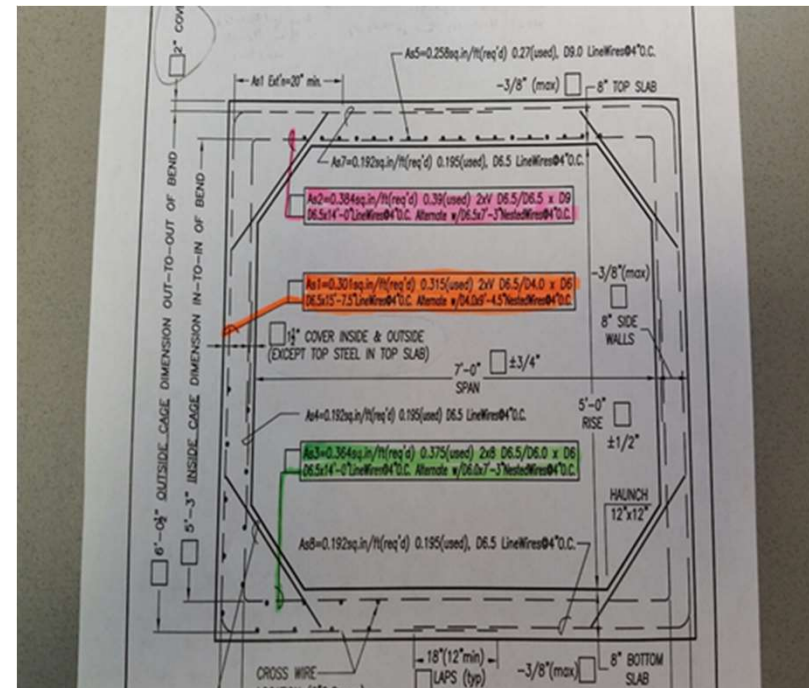 2" COV
As5=0.258sq.in/ft(req'd) 0.27(used), D9.0 LineWires@4"O.C.
As1 Ext'n=20" min.
-3/8" (max)
8" TOP SLAB
As7=0.192sq.in/ft(req'd) 0.195(used), D6.5 LineWires@4"O.C.
As2=0.384sq.in/ft(req'd) 0.39(used) 2xV D6.5/D6.5 x D9
D6.5x14'-0"LineWires@4"O.C. Alternate w/D6.5x7'-3"NestedWires@4"O.C.
As1=0.301sq.in/ft(req'd) 0.315(used) 2xV D6.5/D4.0 x D6
D6.5x15'-7.5"LineWires@4"O.C. Alternate w/D4.0x9'-4.5"NestedWires@4"O.C.
-3/8"(max)
8" SIDE
WALLS
1½" COVER INSIDE & OUTSIDE
(EXCEPT TOP STEEL IN TOP SLAB)
7'-0" ±3/4"
SPAN
As4=0.192sq.in/ft(req'd) 0.195(used) D6.5 LineWires@4"O.C.
5'-0"
RISE
±1/2"
As3=0.364sq.in/ft(req'd) 0.375(used) 2x8 D6.5/D6.0 x D6
D6.5x14'-0"LineWires@4"O.C. Alternate w/D6.0x7'-3"NestedWires@4"O.C.
HAUNCH
12"x12"
As8=0.192sq.in/ft(req'd) 0.195(used), D6.5 LineWires@4"O.C.
6'-0½" OUTSIDE CAGE DIMENSION OUT-TO-OUT OF BEND
5'-3" INSIDE CAGE DIMENSION IN-TO-IN OF BEND
CROSS WIRE
18"(12"min)
LAPS (typ)
-3/8"(max)
8" BOTTOM
SLAB